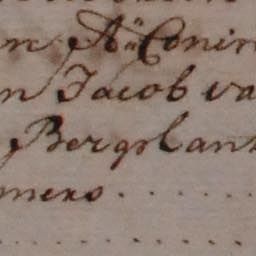 n A: Conin
n Jacob va
Bergslant
mers